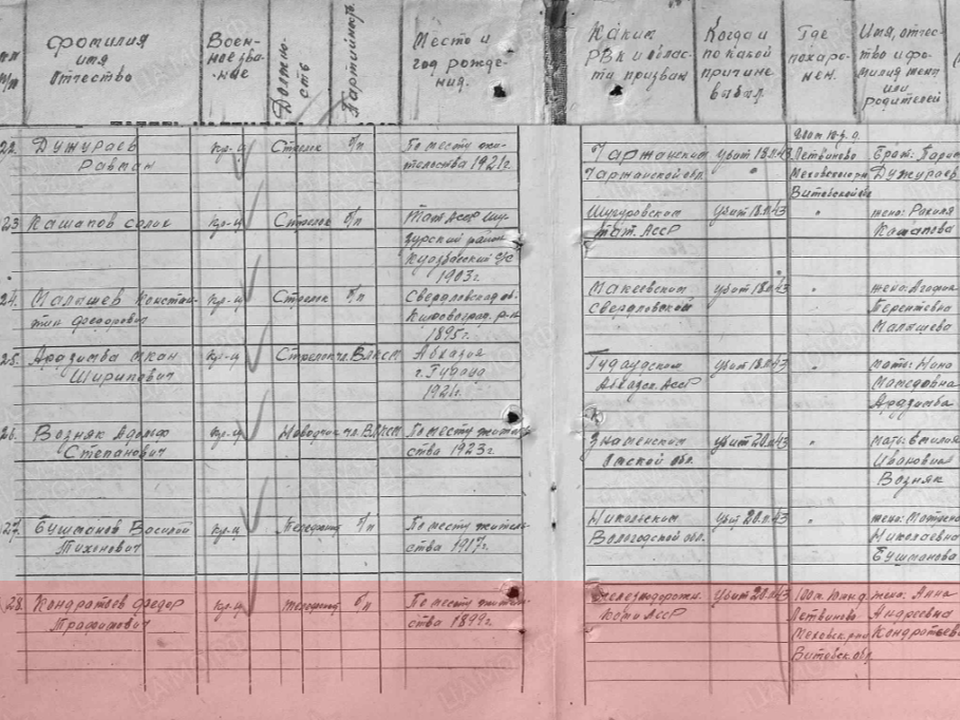 фамилия имя Отчество
Воен-ное зва-ние
Должно-сть
Партийность
Место и год рожде-ния.
Каким РВК и облас-ти призван
Когда и по какой причине выбыл
Где похоро-нен.
Имя, отчес-тво и фа-милия жены или родителей
22. Дужураев Рахман кр-ц Стрелок б/п По месту жи-тельства 1921г. Чаржанским Чаржанской обл. убит 18.11.43 Летвиново Меховского р-н Витебской об Брат: Дужураев
23 Кашапов Салих кр-ц Стрелок б/п Тат АССР Шу-гурский район с/с 1903г. Шугуровским Тат. АССР убит 18.11.43 " жена: Рахиля Кашапова
24. Малышев Констан-тин Федорович кр-ц Стрелок б/п Свердловская об. Кировоград. р-н 1895г. Макеевским Свердловской убит 18.11.43 " жена: Терентевна Малышева
25. Ардзинба Шкан Ширипович кр-ц Стрелок чл. ВЛКСМ Абхазия г. Гудаута 1921г. Гудаутским Абхазск. АССР убит 18.11.43 " мать: Нина Мамедовна Ардзинба
26. Возняк Адольф Степанович кр-ц Наводчик чл. ВЛКСМ По месту житель-ства 1923г. Знаменским Омской обл. убит 20.11.43 " Мать: Эмилия Ивановна Возняк
27. Бушманов Василий Тихонович кр-ц Телефонист б/п По месту житель-ства 1917г. Никольским Вологодской обл. убит 20.11.43 " жена: Матрена Николаевна Бушманова
28. Кондратьев Федор Трафимович кр-ц телефонист б/п По месту житель-ства 1899г. Железнодорожн. Коми АССР Убит 20.11.43 100м. Южн. д. Летвиново Меховск. р-на Витебск. обл. жена: Анна Андреевна Кондратьева